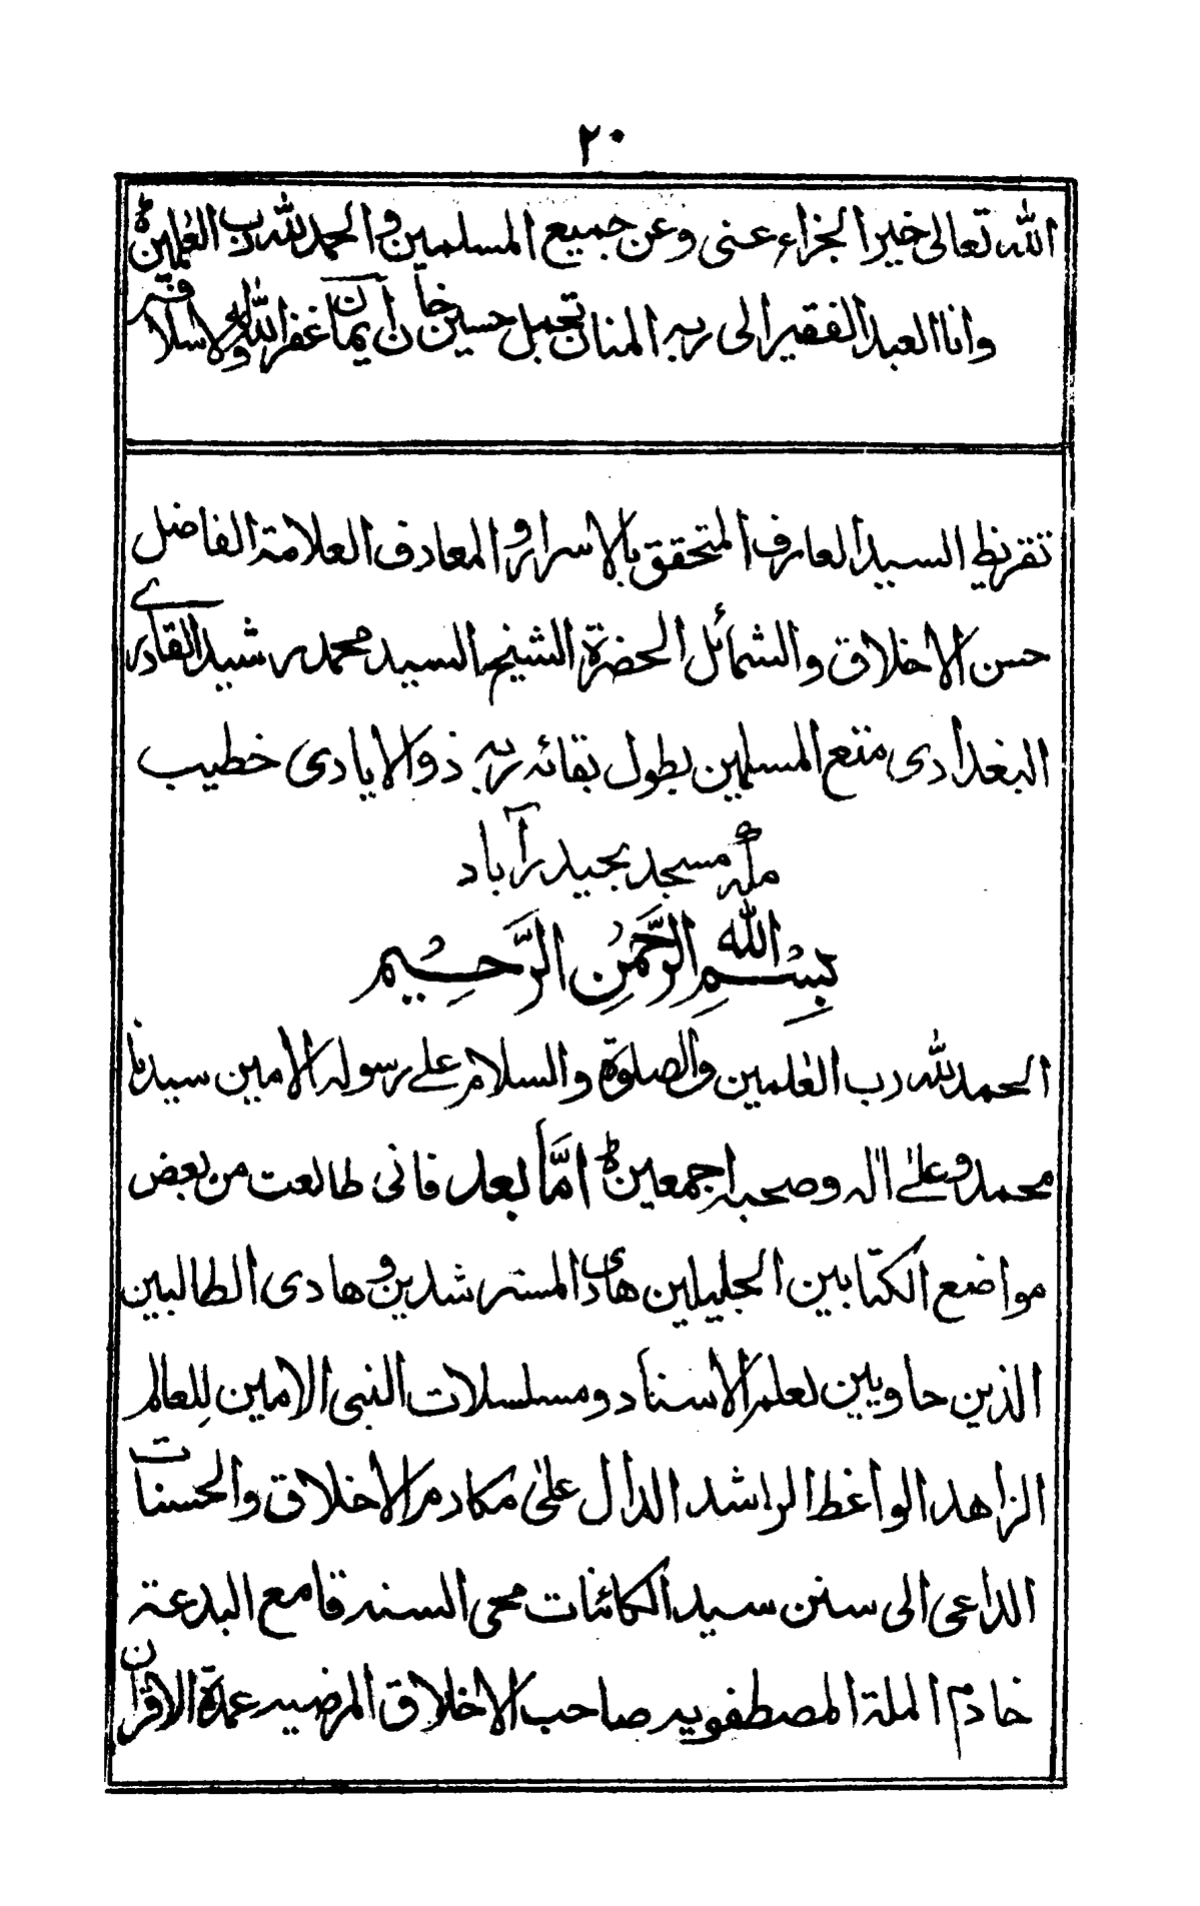 ٢٠
الله تعالى خير الجزاء عنى وعن جميع المسلمين والحمد لله رب العٰلمين
وانا العبد الفقير الى ربه المنان تجمل حسين خان غفر الله ولاسلافه
تقريظ السيد العارف المتحقق بالاسرار والمعارف العلامة الفاضل
حسن الاخلاق والشمائل الحضرة الشيخ السيد محمد رشيد القادرى
البغدادى متع المسلمين بطول بقائه ربه ذو الايادى خطيب
مكه مسجد بحيدرآباد
بِسْمِ اللهِ الرَّحْمٰنِ الرَّحِيْمِ
الحمد لله رب العٰلمين والصلوة والسلام على رسوله الامين سيدنا
محمد وعلىٰ اٰله وصحبه اجمعين امَّا بعد فانى طالعت من بعض
مواضع الكتابين الجليلين هادى المسترشدين وهادى الطالبين
الذين حاويين لعلم الاسناد ومسلسلات النبى الامين لِلعالم
الزاهد الواعظ الراشد الدال علىٰ مكارم الاخلاق والحسنات
الداعى الى سنن سيد الكائنات محى السنه قامع البدعة
خادم الملة المصطفويه صاحب الاخلاق المرضيه عمدة الاقران